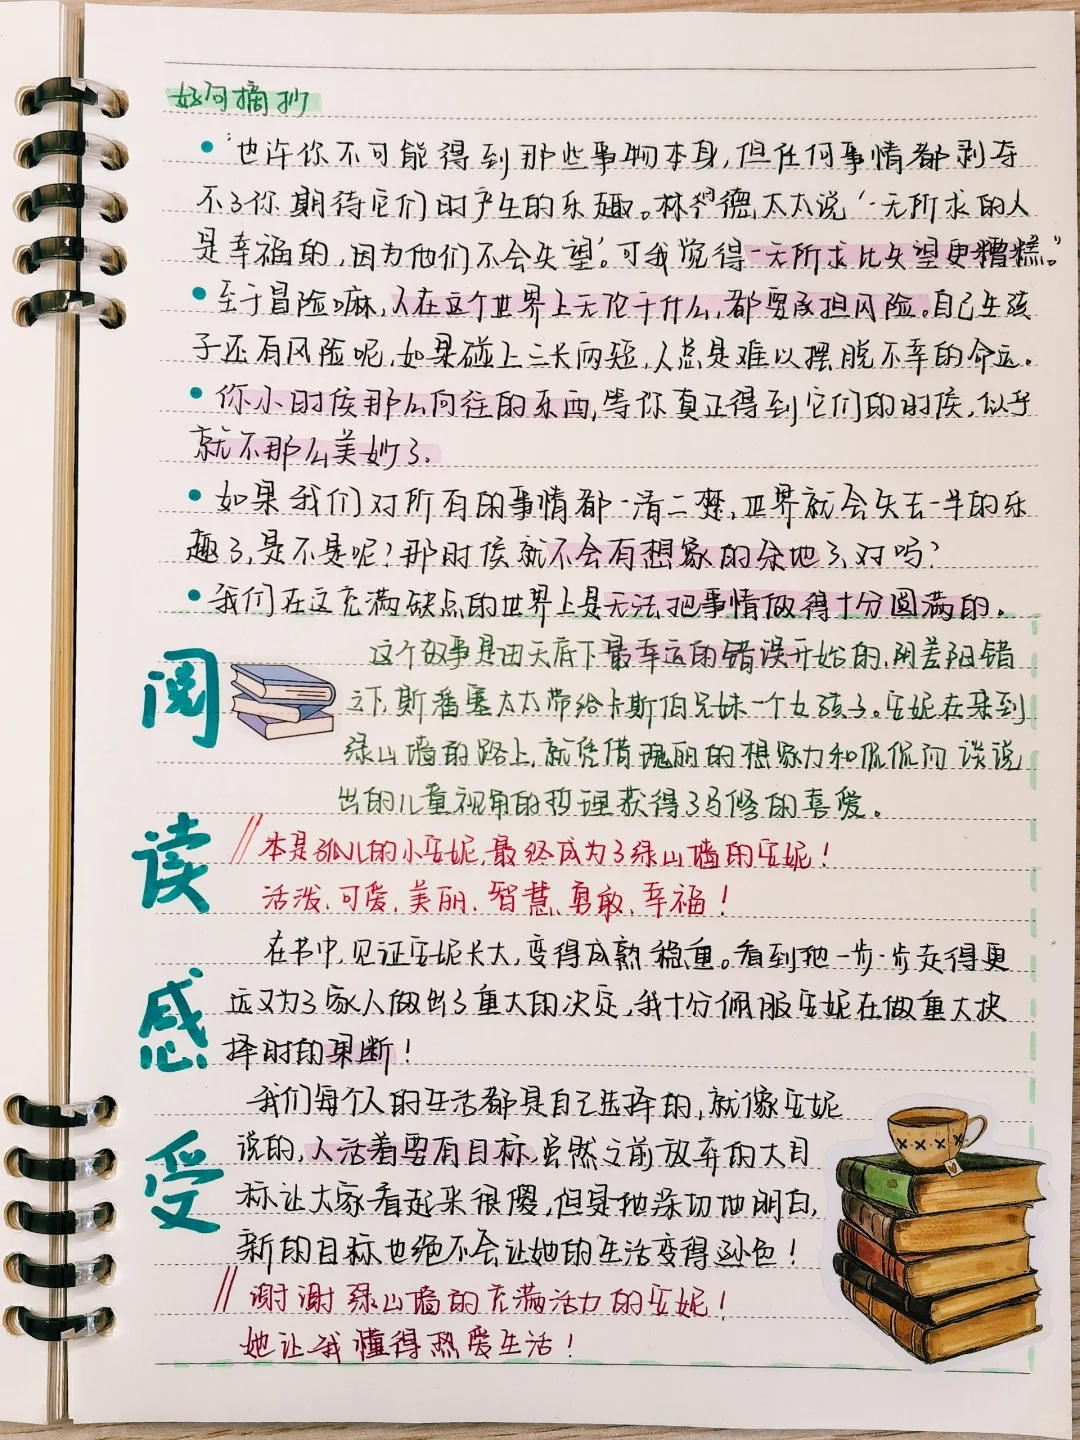 好句摘抄
• “也许你不可能得到那些事物本身,但任何事情都剥夺
不了你期待它们时产生的乐趣。林得德太太说‘一无所求的人
是幸福的,因为他们不会失望’。可我觉得一无所求比失望更糟糕。”
• 至于冒险嘛,人在这个世界上无论干什么,都要承担风险。自己生孩
子还有风险呢,如果碰上三长两短,人总是难以摆脱不幸的命运。
• 你小时候那么向往的东西,等你真正得到它们的时候,似乎
就不那么美妙了.
• 如果我们对所有的事情都一清二楚,世界就会失去一半的乐
趣了,是不是呢?那时候就不会有想象的余地了,对吗?
• 我们在这充满缺点的世界上是无法把事情做得十分圆满的。
阅读感受
这个故事是由天底下最幸运的错误开始的,阴差阳错
之下,斯潘塞太太带给卡斯伯兄妹一个女孩子。安妮在来到
绿山墙的路上,就凭借瑰丽的想象力和侃侃而谈说
出的儿童视角的哲理获得了马修的喜爱。
// 本是孤儿的小安妮,最终成为了绿山墙的安妮!
活泼、可爱、美丽、智慧、勇敢、幸福!
在书中,见证安妮长大,变得成熟稳重。看到她一步一步走得更
远又为了家人做出了重大的决定,我十分佩服安妮在做重大抉
择时的果断!
我们每个人的生活都是自己选择的,就像安妮
说的,人活着要有目标,虽然之前放弃的大目
标让大家看起来很傻,但是她深切地明白,
新的目标也绝不会让她的生活变得逊色!
// 谢谢绿山墙的充满活力的安妮!
她让我懂得热爱生活!